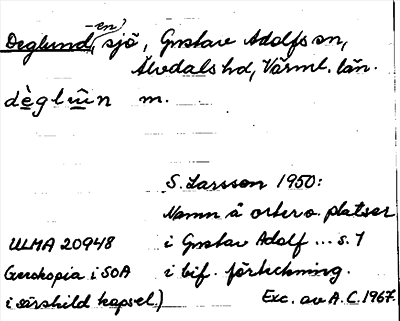 -en
Deglund, sjö, Gustav Adolfs sn,
Älvdals hd, Värml. län.
dèglu̅n m.
S. Larsson 1950:
Namn å orter o. platser
ULMA 20948 i Gustav Adolf ... s. 1
(Xeroxkopia i SOA i bif. förteckning.
i särskild kapsel.) Exc. av A.C. 1967.